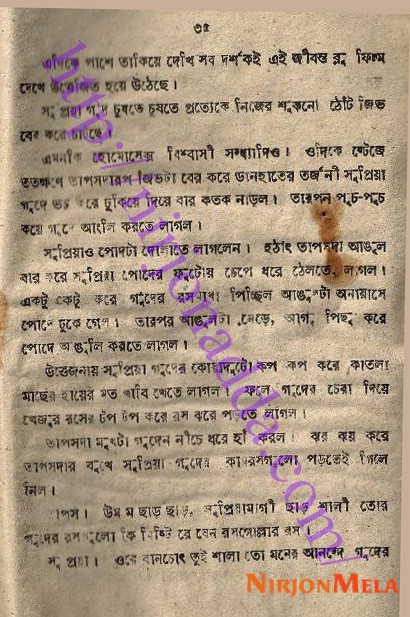 ৩৫
এদিকে পাশে তাকিয়ে দেখি সব দর্শকই এই জীবন্ত ব্লু ফিল্ম
দেখে উত্তেজিত হয়ে উঠেছে।
সুপ্রিয়া গুদ চুষতে চুষতে প্রত্যেকে নিজের শুকনো ঠোঁট জিভ
বের করে চাটছে।
এমনকি হোমোসেক্স বিশ্বাসী সন্ধ্যাদিও। ওদিকে ষ্টেজে
ততক্ষণে তাপসদারপ জিভটা বের করে ডানহাতের তর্জনী সুপ্রিয়া
গুদে ভচ করে ঢুকিয়ে দিয়ে বার কতক নাড়ল। তারপন পুচ-পুচ
কয়ে গুদে আংলি করতে লাগল।
সুপ্রিয়াও পোদটা দোলাতে লাগলেন। হঠাৎ তাপসদা আঙুল
বার করে সুপ্রিয়া পোদের ফুটোয় চেপে ধরে ঠেলতে লাগল।
একটু একটু করে গুদের রসমাখা পিচ্ছিল আঙুলটা অনায়াসে
পোদে ঢুকে গেল। তারপর আঙুলটা নেড়ে, আগু পিছু করে
পোদে অঙুলি করতে লাগল।
উত্তেজনায় সুপ্রিয়া গুদের কোয়াদুটো কপ কপ করে কাতলা
মাছের হায়ের মত খাবি খেতে লাগল। ফলে গুদের চেরা দিয়ে
খেজুর রসের টপ টপ করে রস ঝরে পড়তে লাগল।
তাপসদা মুখটা গুদেন নীচে ধরে হাঁ করল। ঝর ঝয় করে
তাপসদার মুখে সুপ্রিয়া গুদের কামরসগুলো পড়তেই গিলে
নিল।
তাপস। উম ম ছাড় ছাড়, সুপ্রিয়ামাগী ছাড় শালী তোর
গুদের রসগুলো কি মিষ্টি রে যেন রসগোল্লার রস।
সুপ্রিয়া। ওরে বানচোৎ তুই শালা তো মনের আনন্দে গুদের
http://nirjonadda.com
NIRJONMELA